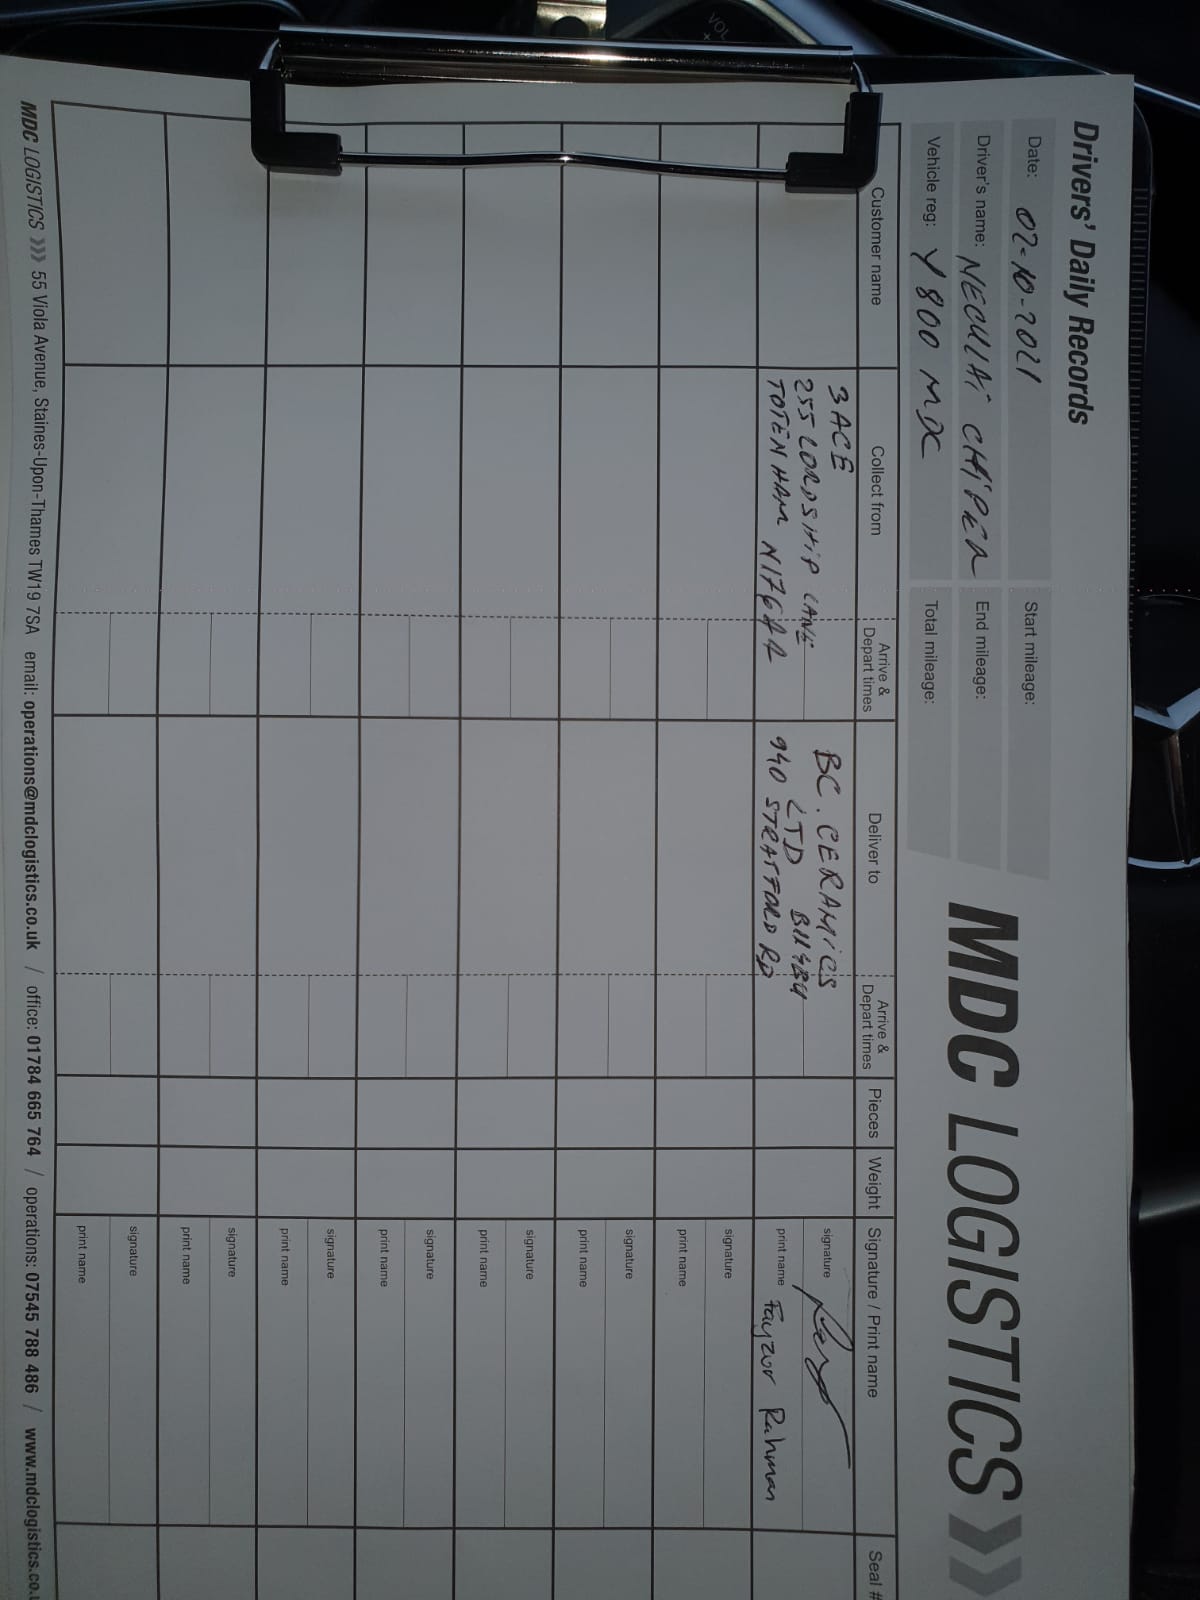 Drivers' Daily Records
MDC LOGISTICS
Date: 02-10-2021
Start mileage:
Driver's name: NECULAI CHIPER
End mileage:
Vehicle reg: Y800 MDC
Total mileage:
Customer name
Collect from
Arrive & Depart times
Deliver to
Arrive & Depart times
Pieces
Weight
Signature / Print name
Seal #
3 ACE
255 LORDSHIP LANE
TOTENHAM N176AA
BC. CERAMICS
LTD B11 4BU
940 STRATFORD RD
signature
print name Fayzur Rahman
signature
print name
signature
print name
signature
print name
signature
print name
signature
print name
signature
print name
signature
print name
MDC LOGISTICS 55 Viola Avenue, Staines-Upon-Thames TW19 7SA email: operations@mdclogistics.co.uk / office: 01784 665 764 / operations: 07545 788 486 / www.mdclogistics.co.u
VOL
+